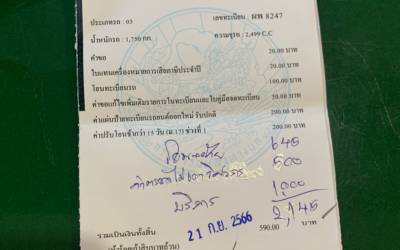 ประเภทรถ : 03 เลขทะเบียน : ผพ 8247
น้ำหนักรถ : 1,750 กก. ความจุรถ : 2,499 C.C
คำขอ 20.00 บาท
ใบแทนเครื่องหมายการเสียภาษีประจำปี 20.00 บาท
โอนทะเบียนรถ 100.00 บาท
ค่าขอแก้ไขเพิ่มเติมรายการในทะเบียนและใบคู่มือจดทะเบียน 50.00 บาท
ค่าแผ่นป้ายทะเบียนรถยนต์ออกใหม่ รับปกติ 200.00 บาท
ค่าปรับโอนช้ากว่า 15 วัน (ม.17) ช่วงที่ 1 200.00 บาท
645
ค่าตรวจ 500
บริการ 1000
2,145
21 ก.ย. 2566
รวมเป็นเงินทั้งสิ้น 590.00 บาท
(ห้าร้อยเก้าสิบบาทถ้วน)